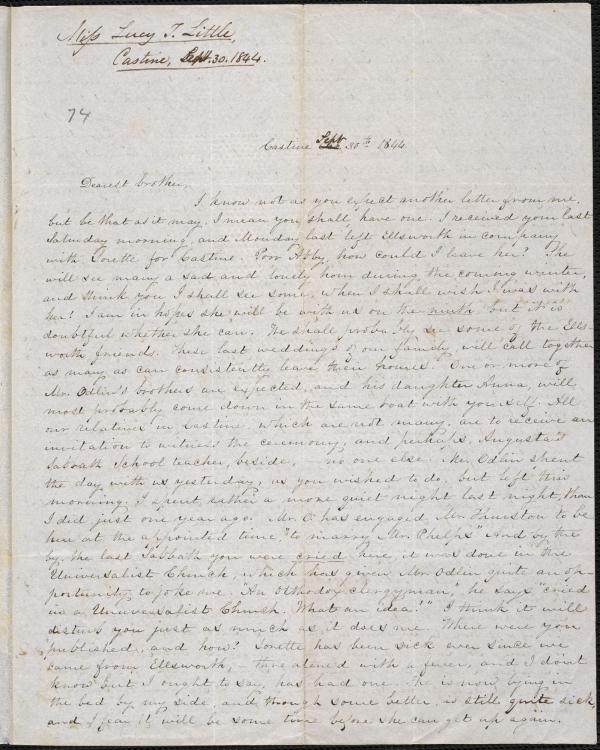 Miss Lucy T. Little,
Castine, Sept. 30. 1844.
74
Castine Sept 30th 1844.
Dearest brother,
I know not as you expect another letter from me,
but be that as it may, I mean you shall have one. I received your last
Saturday morning, and Monday last left Ellsworth in company
with Lorette for Castine. Poor Abby, how could I leave her? She
will see many a sad and lonely hour during the coming winter,
and think you I shall see some, when I shall wish I was with
her! I am in hopes she will be with us on the but it is
doubtful whether she can. We shall probably see some of the Ells-
worth friends. These last weddings of our family, will call together
as many as can consistently leave their homes. One or more of
Mr. Odlin's brothers are expected, and his daughter Anna, will
most probably come down in the same boat with yourself. All
our relatives in Castine, which are not many, are to receive an
invitation to witness the ceremony, and perhaps, Augusta's
Sabbath School teacher, beside, – no one else. Mr. Odlin spent
the day with us yesterday, as you wished to do, but left this
morning. I spent rather a more quiet night last night, than
I did just one year ago. Mr. O. has engaged Mr. to be
here at the appointed time "to marry Mr. Phelps" And by the
by, the last Sabbath you were cried here, it was done in the
Universalist Church, which has given Mr. Odlin quite an op-
portunity to joke me. "An Orthodox clergyman," he says "cried
in a Universalist Church. What an idea!" I think it will
disturb you just as much as it does me. Where were you
published, and how? Lorette has been sick ever since we
came from Ellsworth, – threatened with a fever, and I dont
know but I ought to say, has had one – he is now lying in
the bed by my side, and though some better, is still quite sick,
and I fear it will be some time before she can get up again.